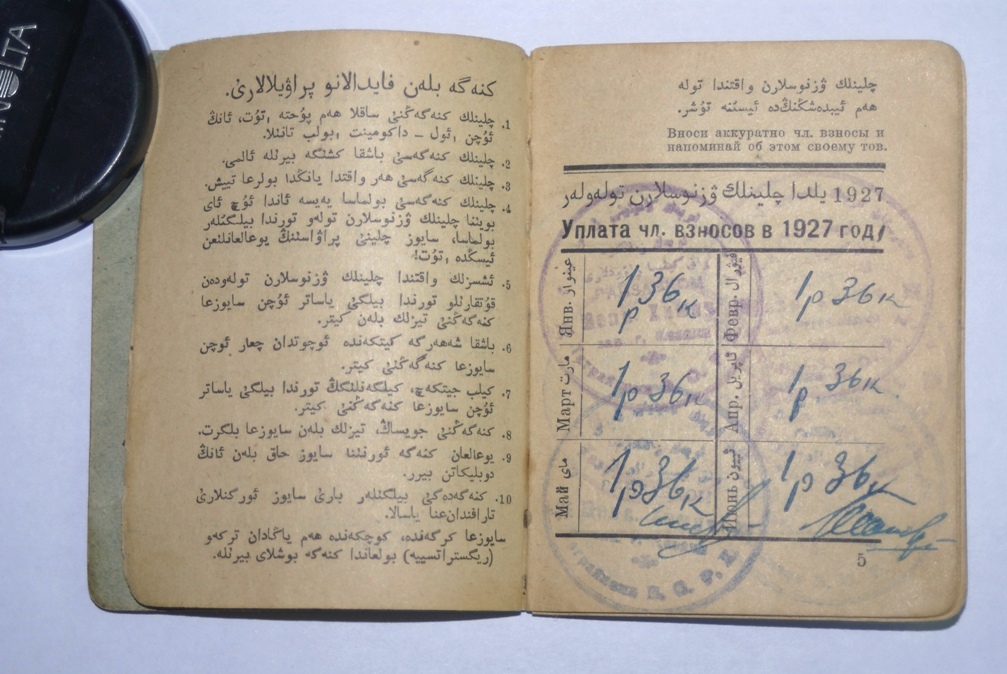 كنەگە بلەن فايدالانو پراۋيلالارى.
1. چلينلك كنەگەگنى ساقلا هەم پۇختە ,تۇت، ئانڭ
ئۇچن ,ئول – داكومينت ,بولب تانلا.
2. چلينلك كنەگەسى باشقا كشلگە بيرلە ئالمى.
3. چلينلك كنەگەسى هەر واقتدا يانڭدا بولرعا تييش.
4. چلينلك كنەگەسى بولماسا يەيسە ئاندا ئۇچ ئاى
بوينا چلينلك ۋزنوسلارن تولەو تورندا بيلگلەر
بولماسا، سايوز چلينى پراۋاسنڭ يوعالعانلعن
ئيسڭدە ,تۇت!
5. ئشسزلك واقتندا چلينلك ۋزنوسلارن تولەودەن
قۇتقارلو تورندا بيلگى ياساتر ئۇچن سايوزعا
كنەگەڭنى تيزلك بلەن كيتر.
6. باشقا شەهەرگە كيتكەندە ئوچوتدان چعار ئوچن
سايوزعا كنەگەڭنى كيتر.
7. كيلب جيتكەچ، كيلگەنلگڭ تورندا بيلگى ياساتر
ئۇچن سايوزعا كنەگەڭنى كيتر.
8. كنەگەڭنى جويساڭ، تيزلك بلەن سايوزعا بلگرت.
9. يوعالعان كنەگە ئورننا سايوز حاق بلەن ئانڭ
دوبليكاتن بيرر.
10. كنەگەدەگى بيلگلەر بارى سايوز ئورگنلارى
تارافندان‌عنا ياسالا.
سايوزعا كرگەندە، كوچكەندە هەم ياڭادان تركەو
(ريگستراتسييە) بولعاندا كنەگە بوشلاى بيرلە.
چلينلك ۋزنوسلارن واقتندا تولە
هەم ئيبدەشڭنڭدە ئيسنە تۇشر.
Вноси аккуратно чл. взносы и
напоминай об этом своему тов.
1927 يلدا چلينلك ۋزنوسلارن تولەولەر
Уплата чл. взносов в 1927 году
عينۋار Янв. 1р 36к
فيۋرال Февр. 1р 36к
مارت Март 1р 36к
ئاپريل Апр. 1р 36к
ماى Май 1р 36к
ئييون Июнь 1р 36к
5
MINOLTA